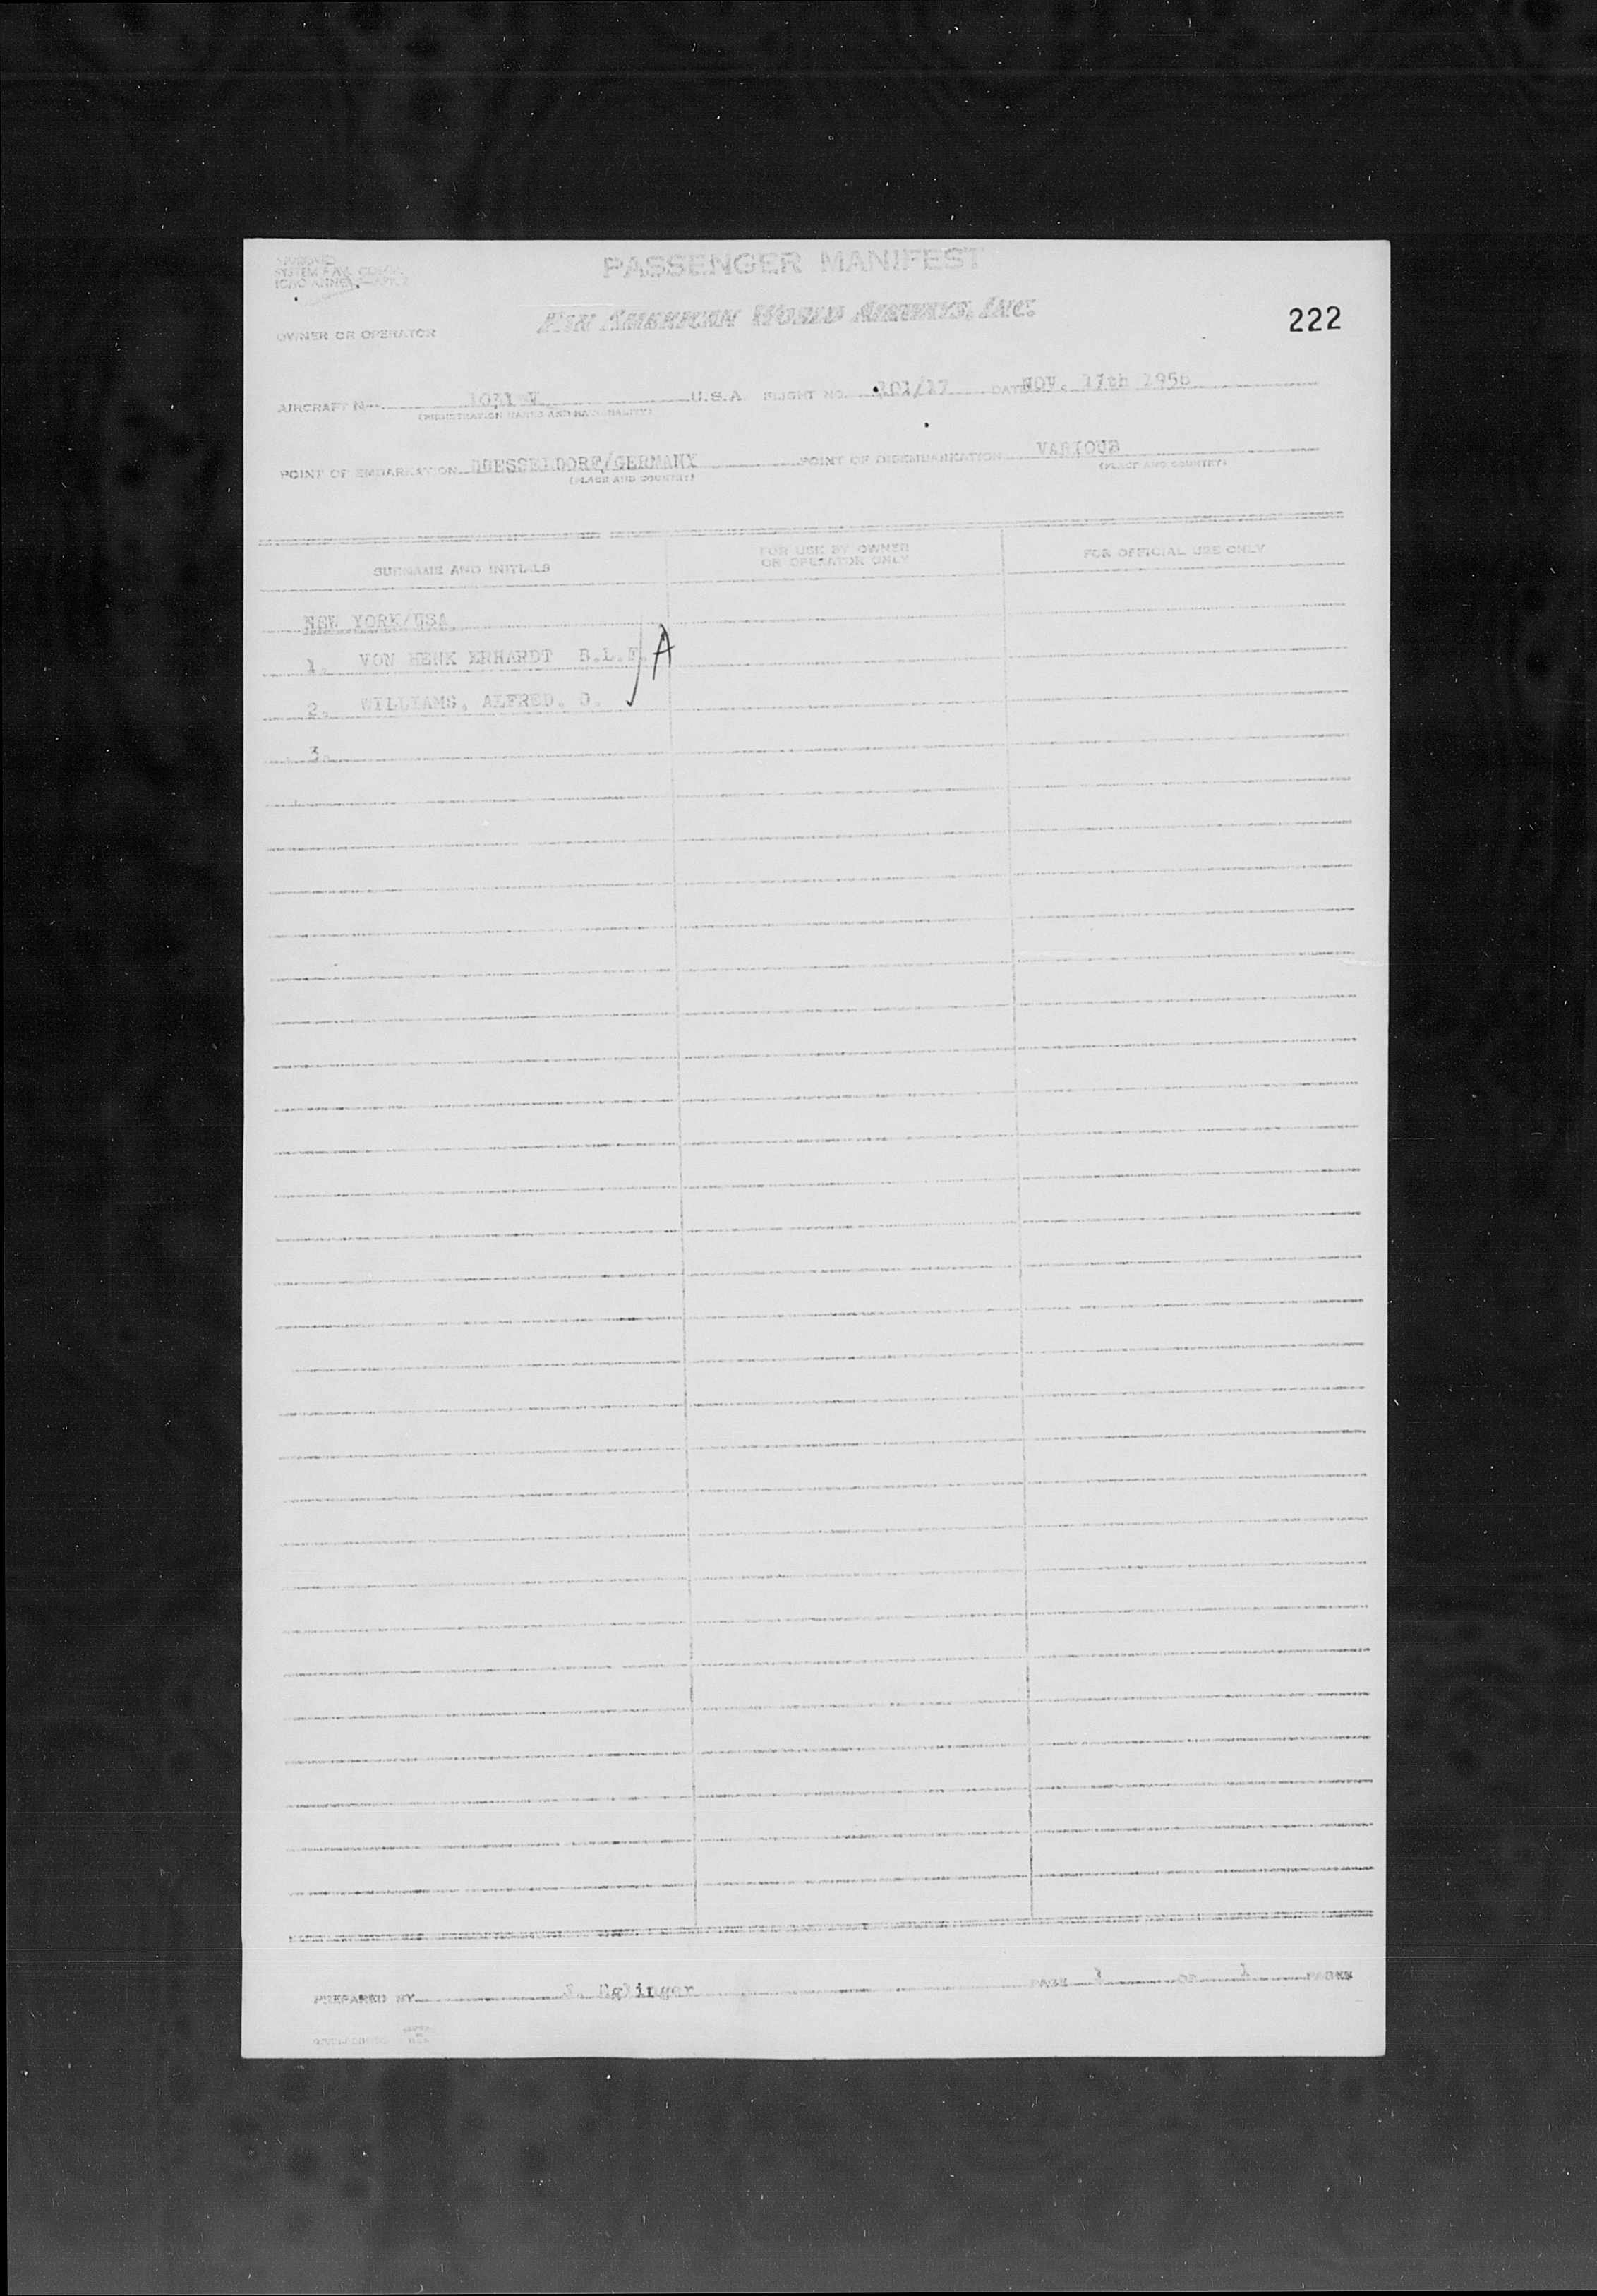 PASSENGER MANIFEST
PAN AMERICAN WORLD AIRWAYS, INC.
222
OWNER OR OPERATOR
AIRCRAFT N U.S.A. FLIGHT NO. 101/17 DATE NOV. 17th 195
(REGISTRATION MARKS AND NATIONALITY)
POINT OF EMBARKATION DUESSELDORF/GERMANY POINT OF DISEMBARKATION VARIOUS
(PLACE AND COUNTRY) (PLACE AND COUNTRY)
SURNAME AND INITIALS
FOR USE BY OWNER
OR OPERATOR ONLY
FOR OFFICIAL USE ONLY
NEW YORK/USA
1. VON HENK ERHARDT B.L.F. A
2. WILLIAMS, ALFRED.
3.
PREPARED BY PAGE 1 OF 1 PAGES